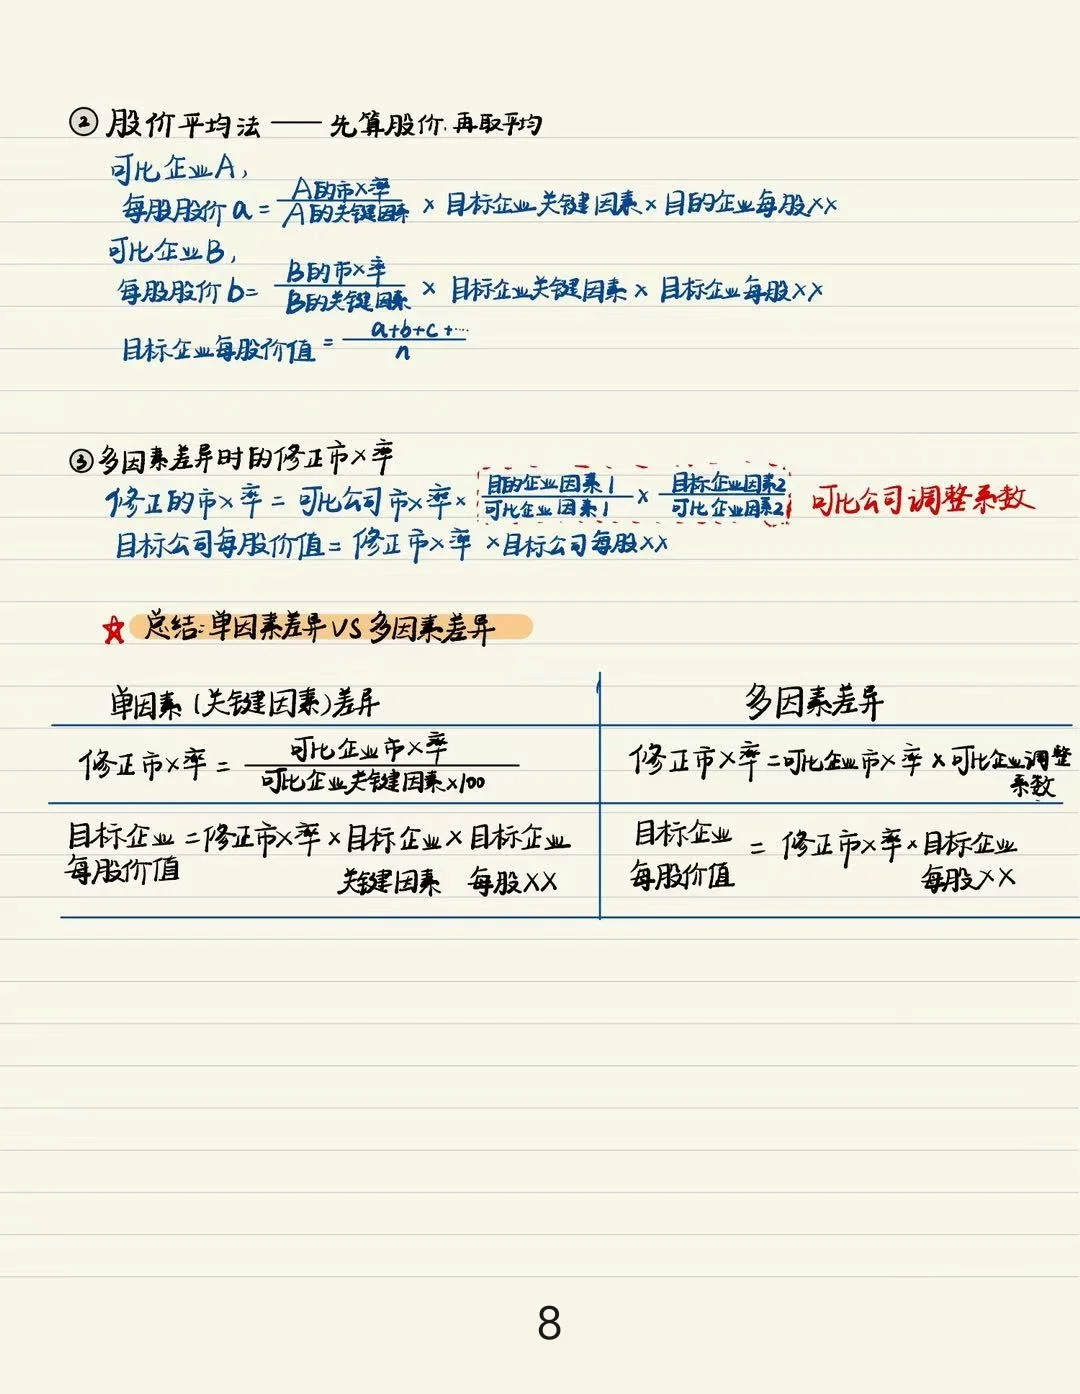 ② 股价平均法 —— 先算股价.再取平均
可比企业A,
每股股价a = A的市×率/A的关键因素 × 目标企业关键因素 × 目的企业每股××
可比企业B,
每股股价b = B的市×率/B的关键因素 × 目标企业关键因素 × 目标企业每股××
目标企业每股价值 = a+b+c+…/n
③多因素差异时的修正市×率
修正的市×率 = 可比公司市×率 × 目的企业因素1/可比企业因素1 × 目标企业因素2/可比企业因素2 可比公司调整系数
目标公司每股价值 = 修正市×率 × 目标公司每股××
☆ 总结:单因素差异 VS 多因素差异
单因素(关键因素)差异 多因素差异
修正市×率 = 可比企业市×率/可比企业关键因素×100
修正市×率 = 可比企业市×率 × 可比企业调整
系数
目标企业 = 修正市×率 × 目标企业 × 目标企业
每股价值 关键因素 每股××
目标企业 = 修正市×率 × 目标企业
每股价值 每股××
8